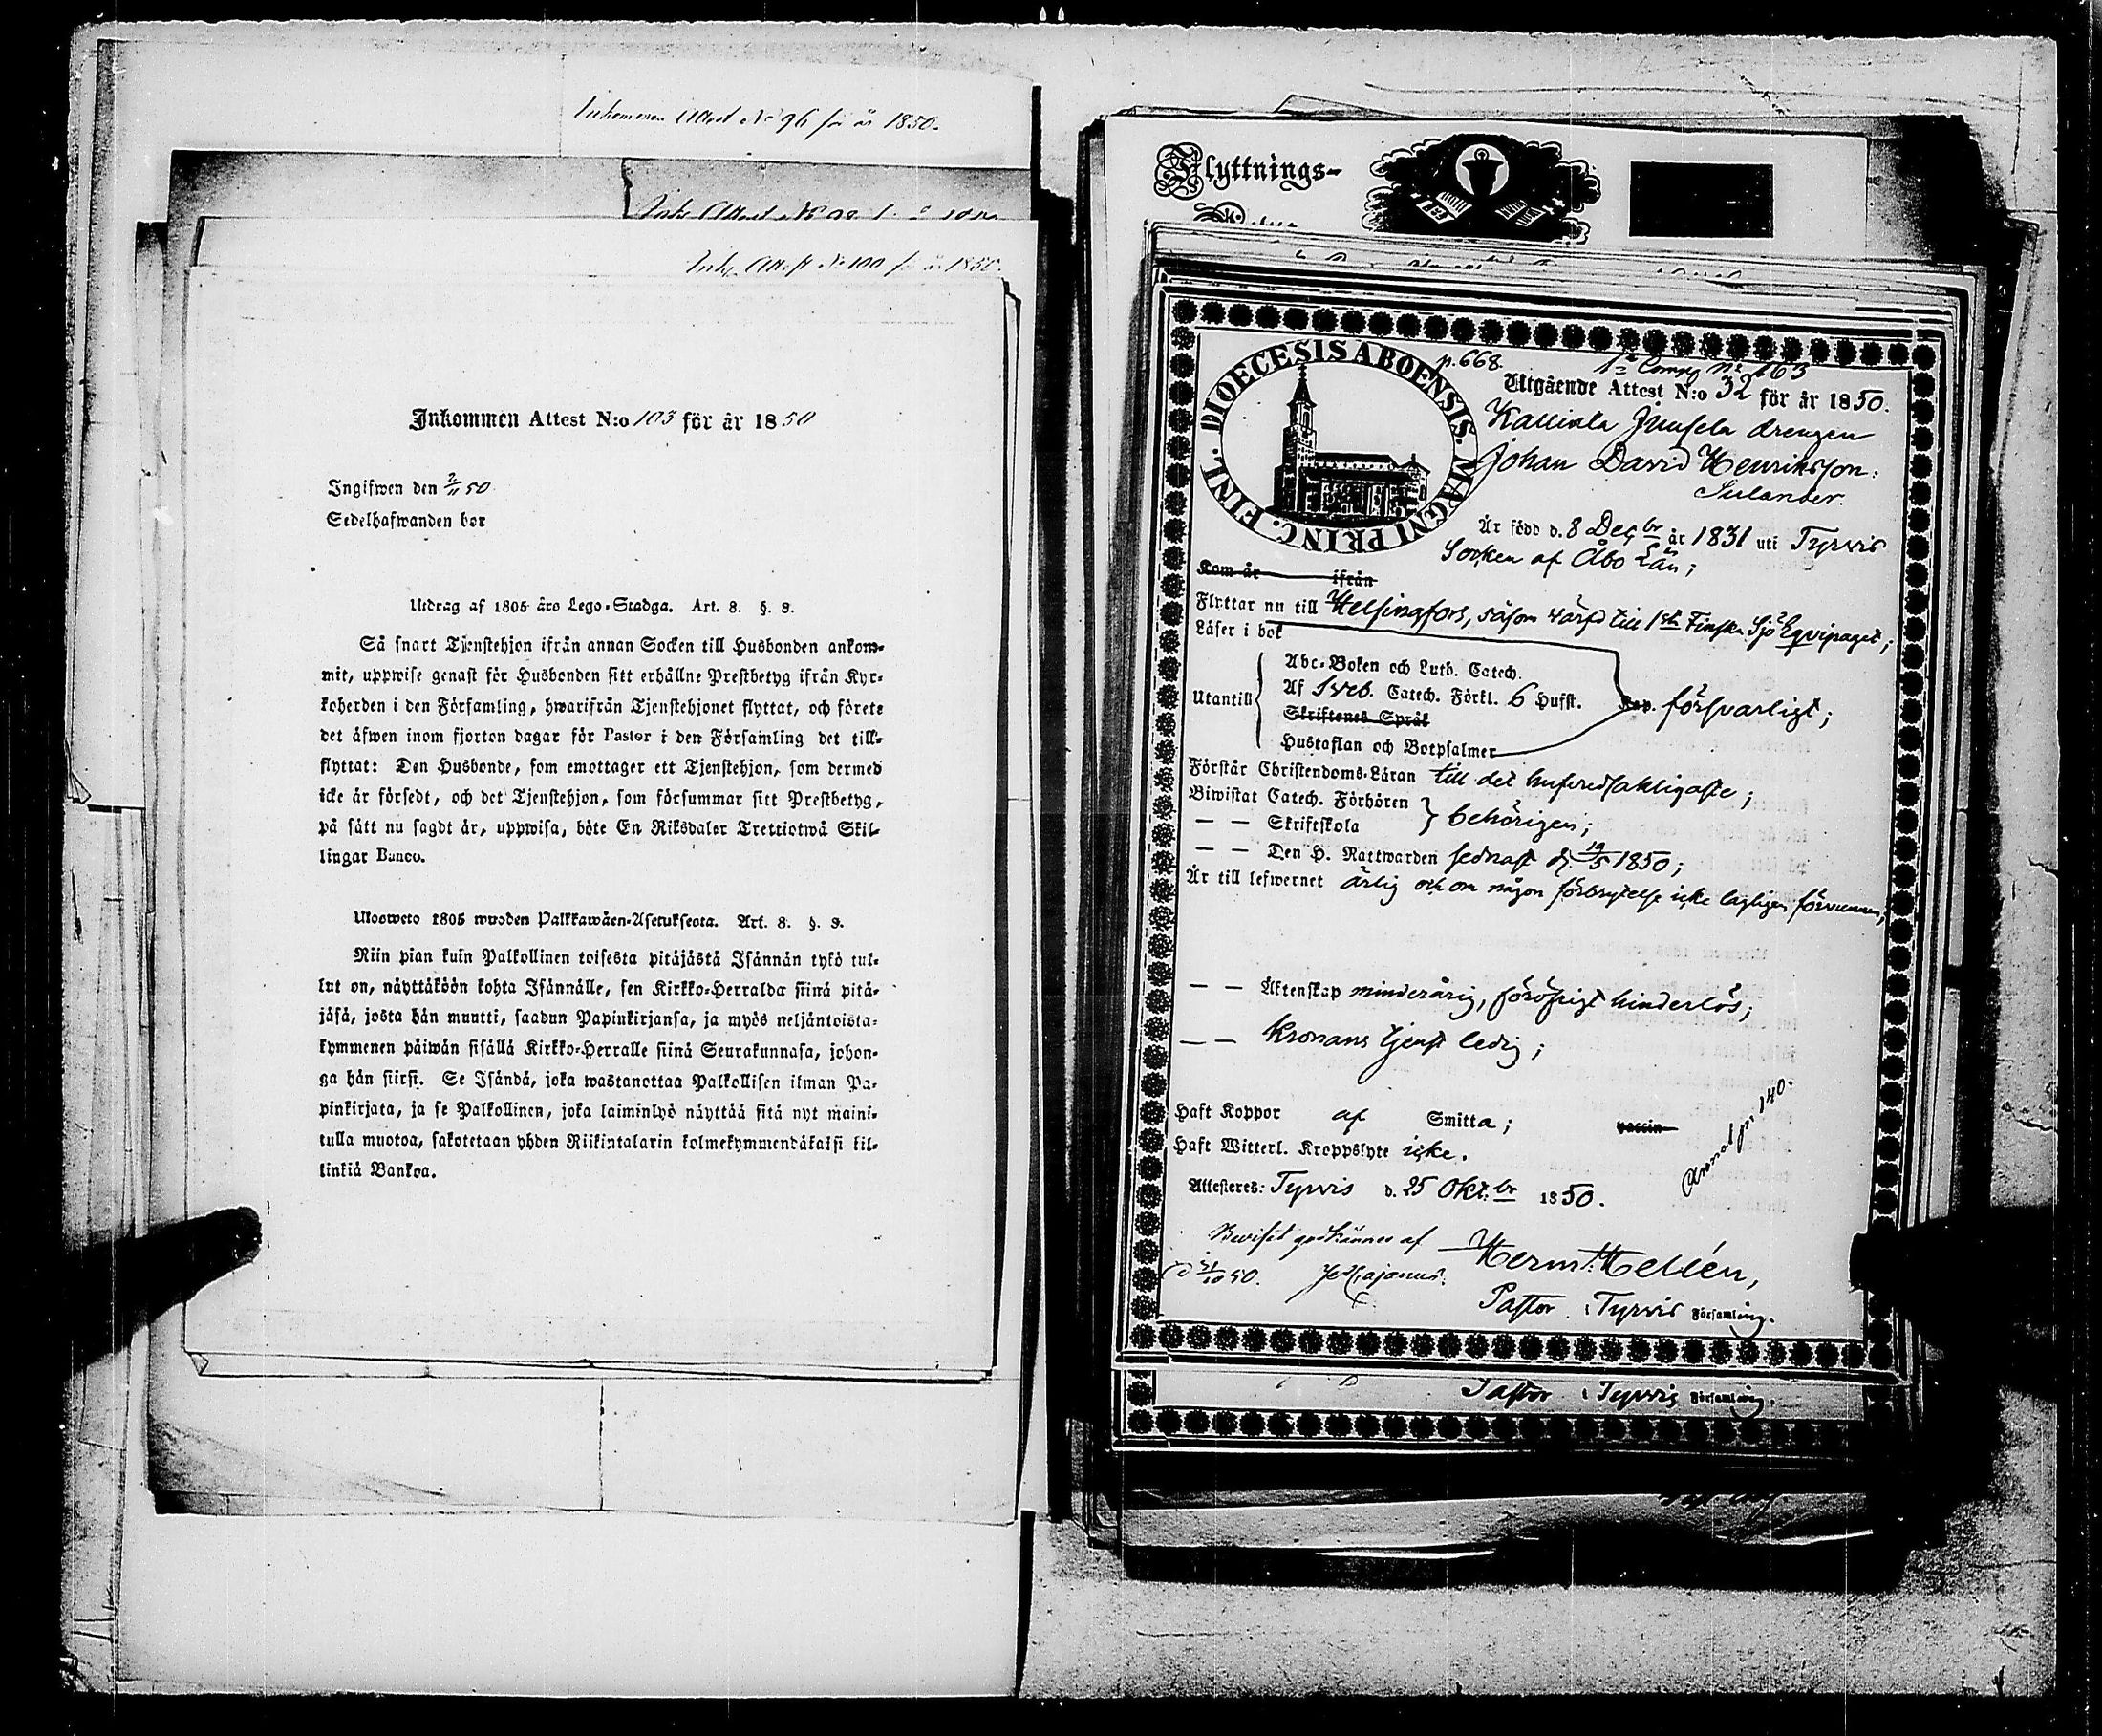 Inkommen Attest No 96 för år 1850.
Ink. Attest No 100 för år 1850.
Inkommen Attest N:o 103 för år 1850
Ingifwen den 2/11 50.
Sedelhafwanden bor
Utdrag af 1805 års Lego-Stadga. Art. 8. §. 8.
Så snart Tjenstehjon ifrån annan Socken till Husbonden ankom-
mit, uppwise genast för Husbonden sitt erhållne Prestbetyg ifrån Kyr-
koherden i den Församling, hwarifrån Tjenstehjonet flyttat, och förete
det äfwen inom fjorton dagar för Pastor i den Församling det till-
flyttat: Den Husbonde, som emottager ett Tjenstehjon, som dermed
icke är försedt, och det Tjenstehjon, som försummar sitt Prestbetyg,
på sätt nu sagdt är, uppwisa, böte En Riksdaler Trettiotwå Skil-
lingar Banco.
Ulosweto 1805 wuoden Palkkawäen-Asetuksesta. Art. 8. §. 8.
Niin pian kuin Palkollinen toisesta pitäjästä Isännän tykö tul-
lut on, näyttäköön kohta Isännälle, sen Kirkko-Herralda siinä pitä-
jäsä, josta hän muutti, saadun Papinkirjansa, ja myös neljäntoista-
kymmenen päiwän sisällä Kirkko-Herralle siinä Seurakunnasa, johon-
ga hän siirsi. Se Isändä, joka wastanottaa Palkollisen ilman Pa-
pinkirjata, ja se Palkollinen, joka laiminlyö näyttää sitä nyt maini-
tulla muotoa, sakotetaan yhden Riikintalarin kolmekymmendäkaksi kil-
linkiä Bankoa.
Flyttnings-
DIOECESIS ABOENSIS. MAGNI PRINC. FINL.
p. 668.
1a Comp No 163
Utgående Attest N:o 32 för år 1850.
Junsela drengen
Johan David Henriksson
Är född d. 8 Decbr år 1831 uti Tyrvis
Socken af Åbo Län;
Kom år ifrån
Flyttar nu till Helsingfors, såsom värfd till 1sta Finska Sjö Eqvipaget;
Läser i bok
Abc-Boken och Luth. Catech.
Utantill Af Sveb. Catech. Förkl. 6 Hufst. försvarligt;
Skriftenes Språk
Hustaflan och Botpsalmer
Förstår Christendoms-Läran till det hufvudsakligaste;
Biwistat Catech. Förhören
— — Skriftskola behörigen;
— — Den H. Nattwarden sednast d. 19/5 1850;
Är till lefwernet ärlig och om någon förbrytelse icke lagligen förvunnen;
— — Äktenskap minderårig, föröfrigt hinderlös;
— — Kronans tjenst ledig;
Haft Koppor af Smitta; vaccin
Haft Witterl. Kroppslyte icke.
Annot. pg 140.
Attesteres: Tyrvis d. 25 Oktbr 1850.
Beviset godkännes af
d 31/10 50.
Herm. Hellén,
Pastor i Tyrvis Församling.
Pastor i Tyrvis Församling.